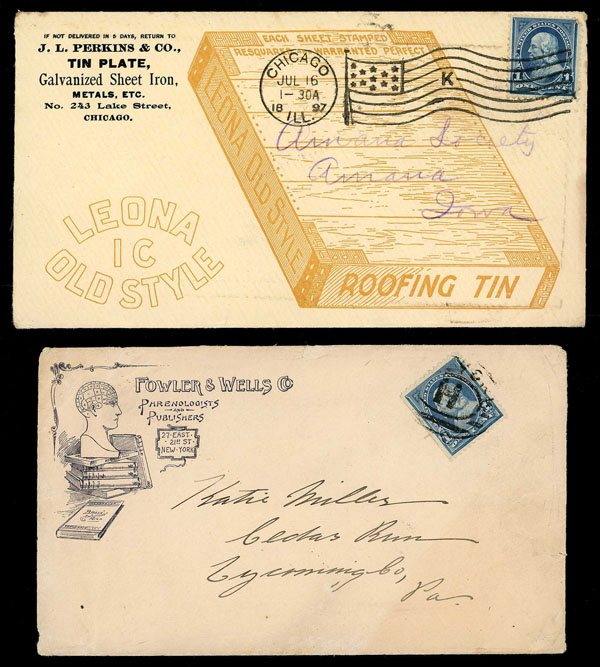 IF NOT DELIVERED IN 5 DAYS, RETURN TO
J. L. PERKINS & CO.,
TIN PLATE,
Galvanized Sheet Iron,
METALS, ETC.
No. 243 Lake Street,
CHICAGO.
EACH SHEET STAMPED
RESQUARED WARRANTED PERFECT
CHICAGO
JUL 16
1-30A
18 97
ILL.
K
1 1
Amana Society
Amana
Iowa
LEONA OLD STYLE
ROOFING TIN
LEONA
IC
OLD STYLE
FOWLER & WELLS CO
PHRENOLOGISTS
AND
PUBLISHERS
27 EAST
21ST ST
NEW YORK
H
Katie Miller
Cedar Run
Lycoming Co,
Pa.